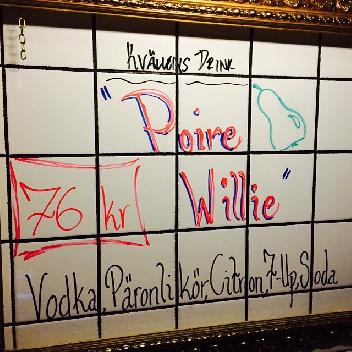 Kvällens Drink
"Poire
76 kr
Willie"
Vodka, Päronlikör, Citron, 7-Up, Soda